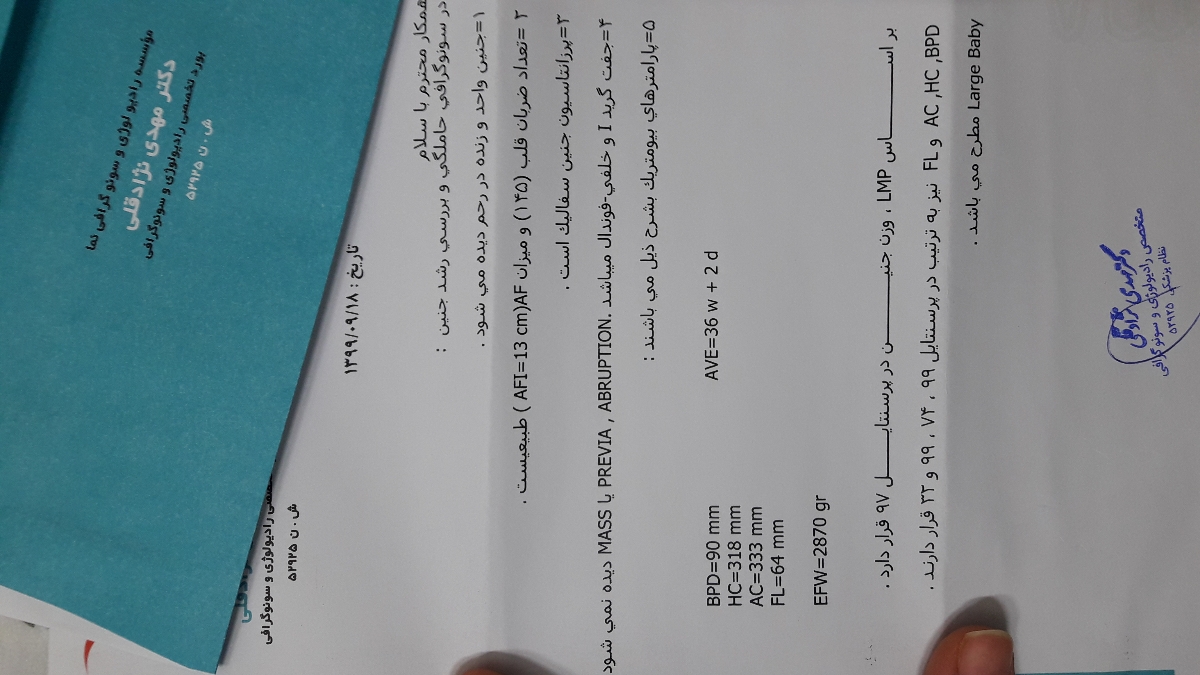 مؤسسه رادیولوژی و سونوگرافی نما
دکتر مهدی نژادقلی
بورد تخصصی رادیولوژی و سونوگرافی
ش . ن ۵۲۹۲۵
رادیولوژی و سونوگرافی
ش . ن ۵۲۹۲۵
تاریخ : ۱۳۹۹/۰۹/۱۸
همکار محترم با سلام
در سونوگرافي حاملگي و بررسي رشد جنین :
۱=جنین واحد و زنده در رحم دیده مي شود .
۲ =تعداد ضربان قلب (۱۴۵) و میزان AF(AFI=13 cm ) طبیعیست .
۳=پرزانتاسیون جنین سفالیك است .
۴=جفت گرید I و خلفي-فوندال میباشد .PREVIA , ABRUPTION یا MASS دیده نمي شود
۵=پارامترهاي بیومتریك بشرح ذیل مي باشند :
BPD=90 mm AVE=36 w + 2 d
HC=318 mm
AC=333 mm
FL=64 mm
EFW=2870 gr
بر اســـــــاس LMP ، وزن جنیــــــن در پرسنتایــــــل ۹۷ قرار دارد .
AC ,HC ,BPD و FL نیز به ترتیب در پرسنتایل ۹۹ ، ۷۴ ، ۹۹ و ۳۳ قرار دارند .
Large Baby مطرح مي باشد .
دکتر مهدی نژادقلی
متخصص رادیولوژی و سونوگرافی
نظام پزشکی ۵۲۹۲۵